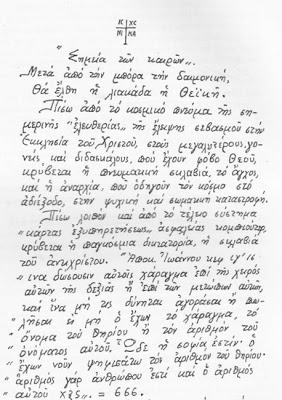 „Σημεῖα τῶν καιρῶν„.
Μετά ἀπό τήν μπόρα τήν δαιμονική,
Θά ἔλθη ἡ λιακάδα ἡ Θεϊκή.
Πίσω ἀπό τό κοσμικό πνεῦμα τῆς ση-
μερινῆς "ἐλευθερίας„ τῆς ἔλλειψης σεβασμοῦ στήν
Ἐκκλησία τοῦ Χριστοῦ, στούς μεγαλυτέρους, γο-
νεῖς καί διδασκάλους, πού ἔχουν φόβο Θεοῦ,
κρύβεται ἡ πνευματική σκλαβιά, τό ἄγχος,
καί ἡ ἀναρχία, πού ὁδηγοῦν τόν κόσμο στό
ἀδιέξοδο, στήν ψυχική καί σωματική καταστροφή.
Πίσω λοιπόν καί ἀπό τό τέλειο σύστημα
"κάρτας ἐξυπηρετήσεως„ ἀσφαλείας κομπιοῦτερ,
κρύβεται ἡ παγκόσμια δικτατορία, ἡ σκλαβιά
τοῦ ἀντιχρίστου. Ἰωάννου κεφ ιγ' 16
" ἵνα δώσουσιν αὐτοῖς χάραγμα ἐπί τῆς χειρός
" αὐτῶν τῆς δεξιᾶς ἤ ἐπί τῶν μετώπων αὐτῶν,
" καί ἵνα μή τις δύνηται ἀγοράσαι ἤ πω-
" λῆσαι εἰ μή ὁ ἔχων τό χάραγμα, τό
" ὄνομα τοῦ θηρίου ἤ τόν ἀριθμόν τοῦ
" ὀνόματος αὐτοῦ. Ὧδε ἡ σοφία ἐστίν· ὁ
" ἔχων νοῦν ψηφισάτω τόν ἀριθμόν τοῦ θηρίου·
" ἀριθμός γάρ ἀνθρώπου ἐστί καί ὁ ἀριθμός
" αὐτοῦ χξς„. = 666.